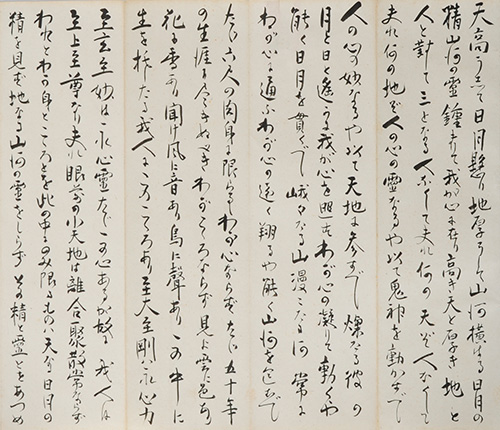 天高うして日月懸り地厚うして山河横はる日月の
精山河の靈鍾まりて我が心に在り高き天と厚き地と
人と對して三となる人なくして夫れ何の天ぞ人なくして
夫れ何の地ぞ人の心の靈なるや以て鬼神を動かすべく
人の心の妙なるや以て天地に参ずべし爛たる彼の
月と日と遙かに我が心を照せどわが心の凝りて動くや
能く日月を貫くべし峨々たる山漫々たる河常に
わが心に通ふわが心の遠く翔るや能く山河を包むべし
たゞ六尺の肉身に限らるゝわが心ならずたゞ五十年
の生涯に尽きぬべきわがこゝろならず見よ雲に色あり
花に香あり聞け風に音あり鳥に聲あり この中に
生を托したる我人にこゝろあり至大至剛はこれ心力
至玄至妙はこれ心靈たゞこの心あるが故に我人は
至上至尊なり夫れ眼前の小天地は離合聚散常ならず
われとわが身とこゝろとを此の中にのみ限るものは天なる日月の
精を見ず地なる山河の靈をしらず その精と靈とをあつめ